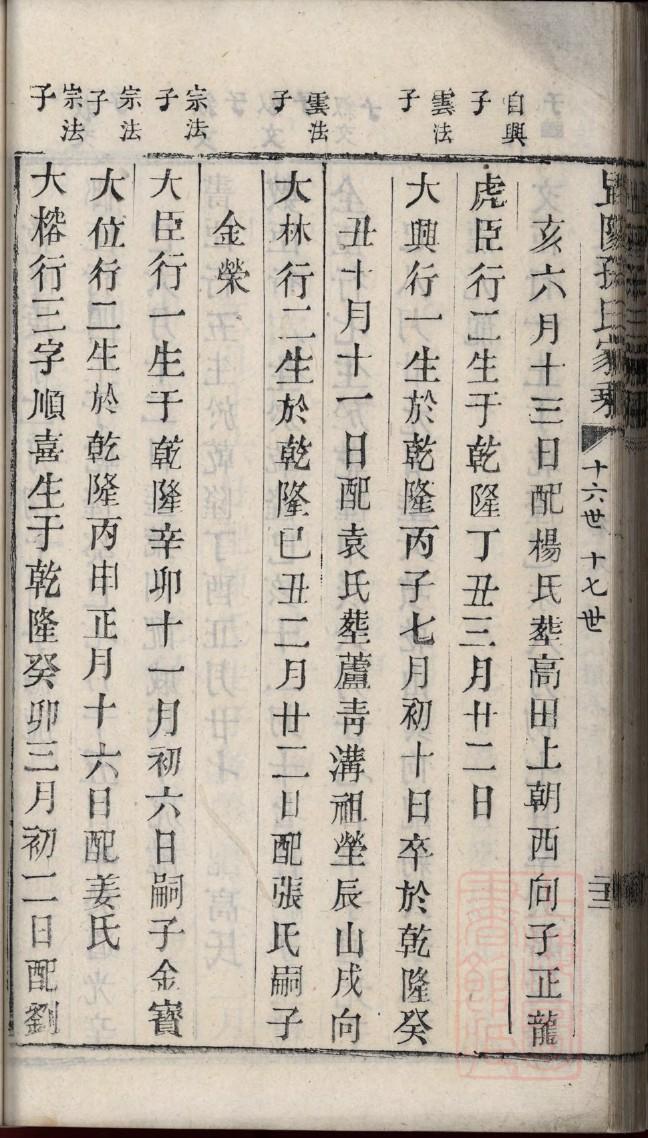 孫氏家乘 十六世 十七世
亥六月十三日配楊氏葬高田上朝西向子正龍
自興子
虎臣行二生于乾隆丁丑三月廿二日
雲法子
大興行一生於乾隆丙子七月初十日卒於乾隆癸
丑十月十一日配袁氏葬蘆青溝祖塋辰山戌向
雲法子
大林行二生於乾隆己丑二月廿二日配張氏嗣子
金榮
宗法子
大臣行一生于乾隆辛卯十一月初六日嗣子金寶
宗法子
大位行二生於乾隆丙申正月十六日配姜氏
宗法子
大榕行三字順喜生于乾隆癸卯三月初二日配劉